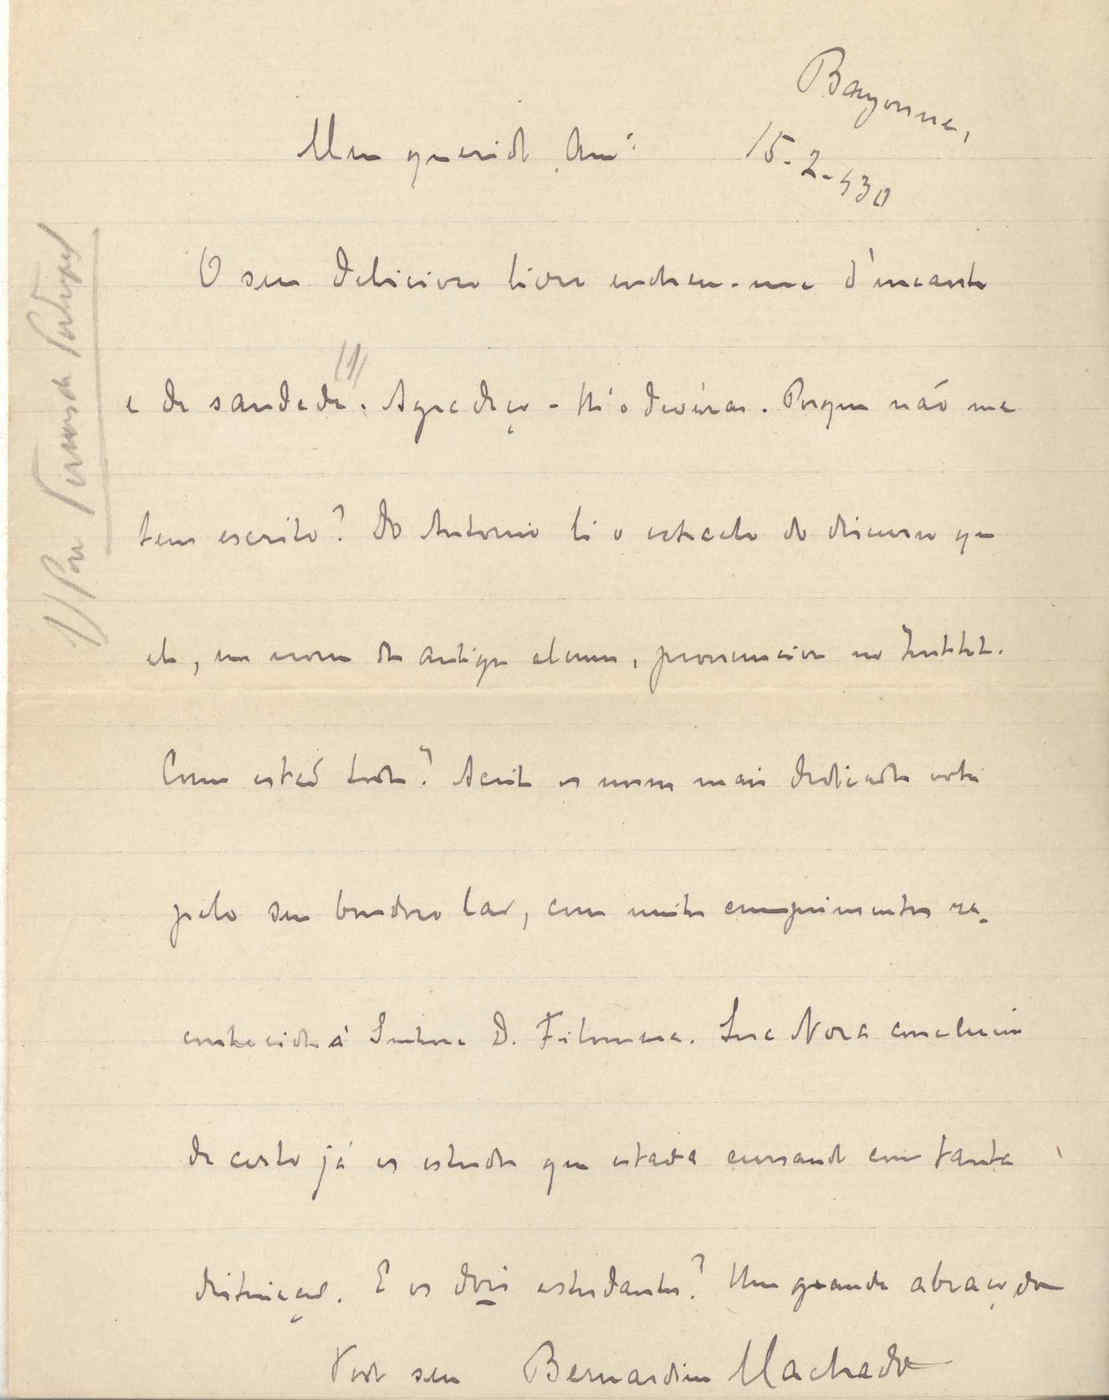 Bayonne,
15-2-930
Meu querido Amº
O seu delicioso livro encheu-me d'encanto
e de saudade. (1) Agradeço-lh'o deveras. Porque não me
tem escrito? Do Antonio li o extracto do discurso que
ele, em nome dos antigos alumnos, pronunciou no Instituto.
Como estão todos? Aceite os nossos mais dedicados votos
pelo seu bondoso lar, com muitos cumprimentos re-
conhecidos á Senhora D. Filomena. Sua Nora concluiu
de certo já os estudos que estava cursando com tanta
distinção. E os dois estudantes? Um grande abraço do
Todo seu Bernardino Machado
1) Por Terras de Portugal